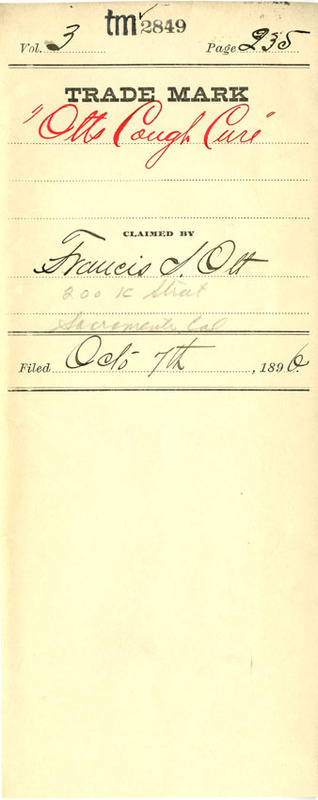 tm 2849
Vol. 3 Page 235
TRADE MARK
"Otts Cough Cure"
CLAIMED BY
Francis S. Ott
200 K Street
Sacramento Cal
Filed Octo 7th, 1896.